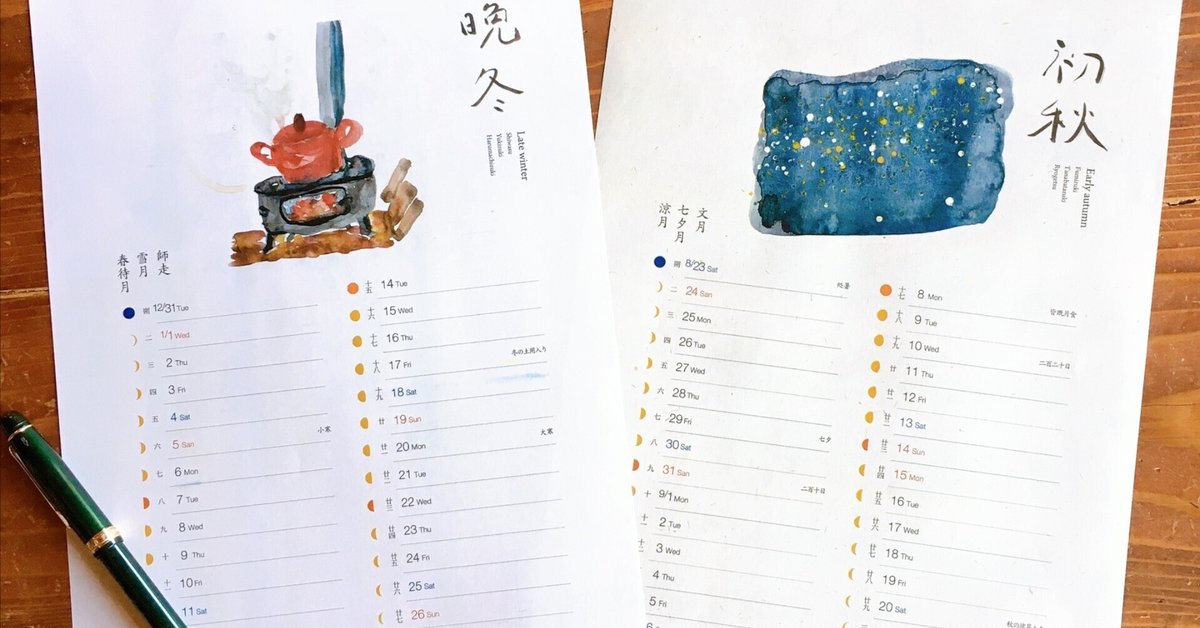 晩冬
Late winter
Shiwasu
Yukizuki
Harumachizuki
師走
雪月
春待月
朔 12/31 Tue
二 1/1 Wed
三 2 Thu
四 3 Fri
五 4 Sat
小寒
六 5 San
七 6 Mon
八 7 Tue
九 8 Wed
十 9 Thu
十一 10 Fri
11 Sat
十五 14 Tue
十六 15 Wed
十七 16 Thu
冬の土用入り
十八 17 Fri
十九 18 Sat
廿 19 Sun
大寒
廿一 20 Mon
廿二 21 Tue
廿三 22 Wed
廿四 23 Thu
廿五 24 Fri
廿六 25 Sat
廿七 26 Sun
初秋
Early autumn
Fumizuki
Tanabatazuki
Ryogetsu
文月
七夕月
涼月
朔 8/23 Sat
処暑
二 24 San
三 25 Mon
四 26 Tue
五 27 Wed
六 28 Thu
七 29 Fri
七夕
八 30 Sat
九 31 San
二百十日
十 9/1 Mon
十一 2 Tue
十二 3 Wed
4 Thu
5 Fri
6 Sat
十七 8 Mon
皆既月食
十八 9 Tue
十九 10 Wed
二百二十日
廿 11 Thu
廿一 12 Fri
廿二 13 Sat
廿三 14 Sun
廿四 15 Mon
廿五 16 Tue
廿六 17 Wed
廿七 18 Thu
廿八 19 Fri
廿九 20 Sat